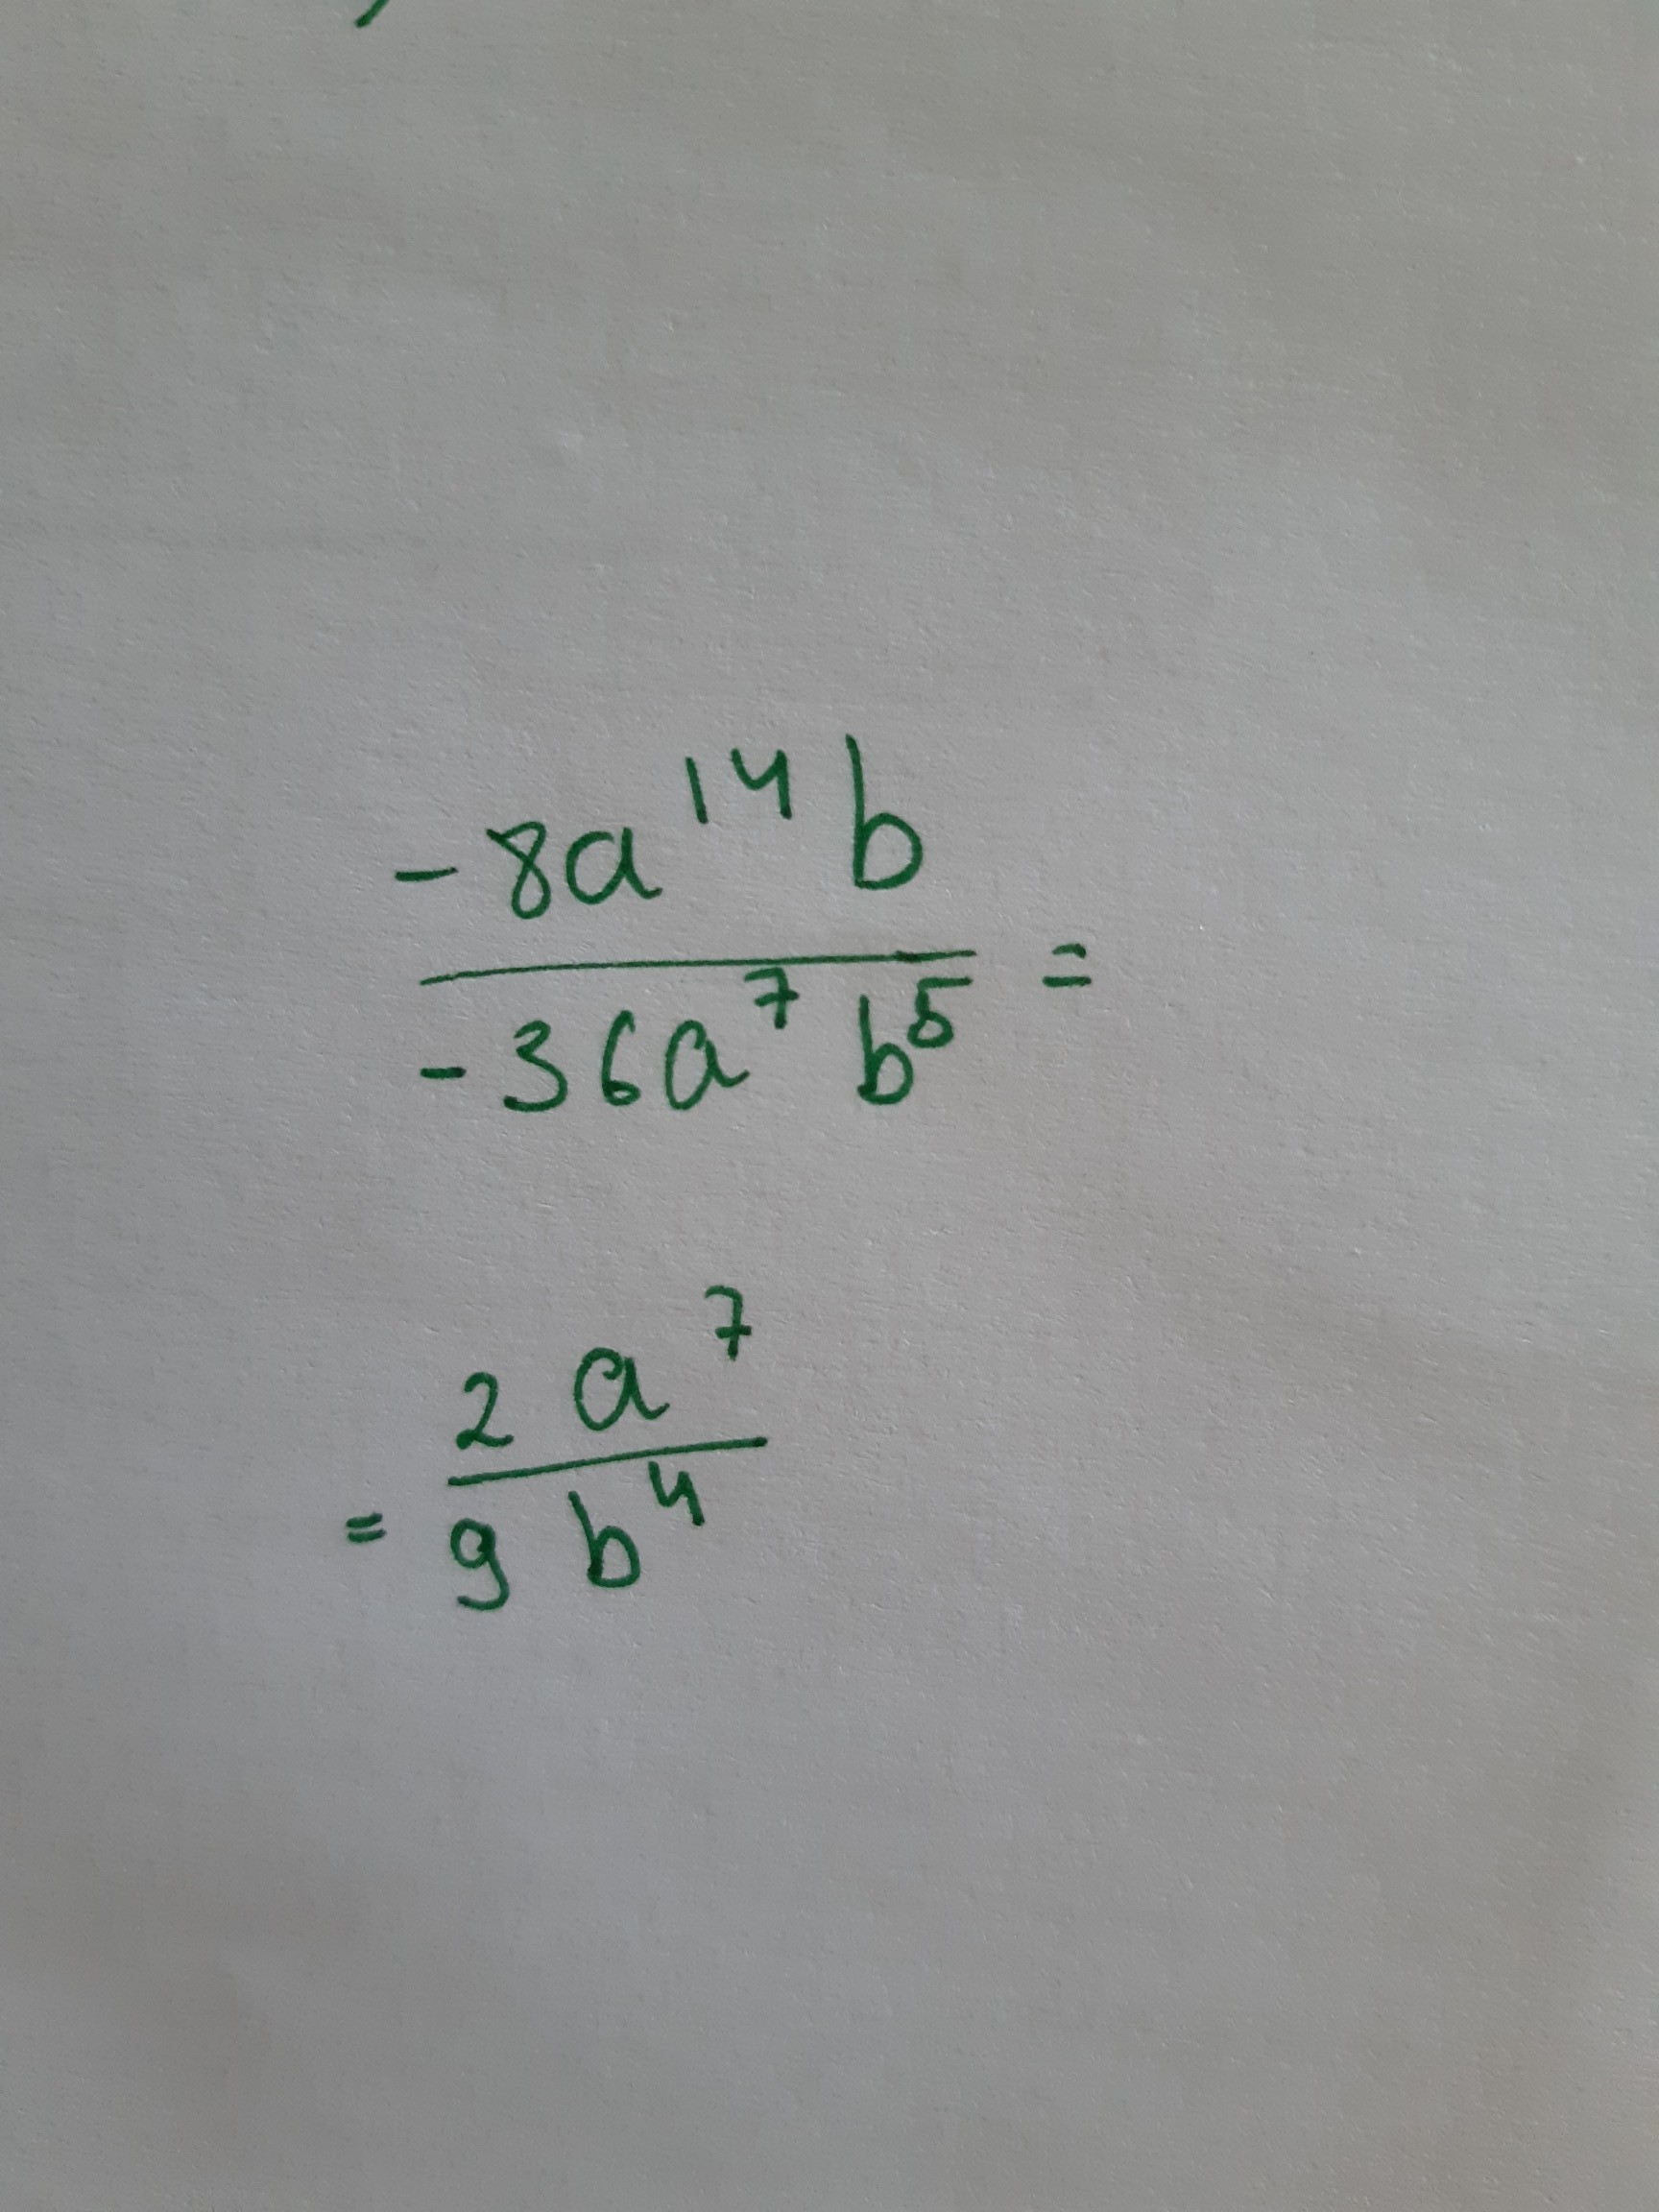 -8a¹⁴ b
-36a⁷ b⁵ =
2 a⁷
= 9 b⁴